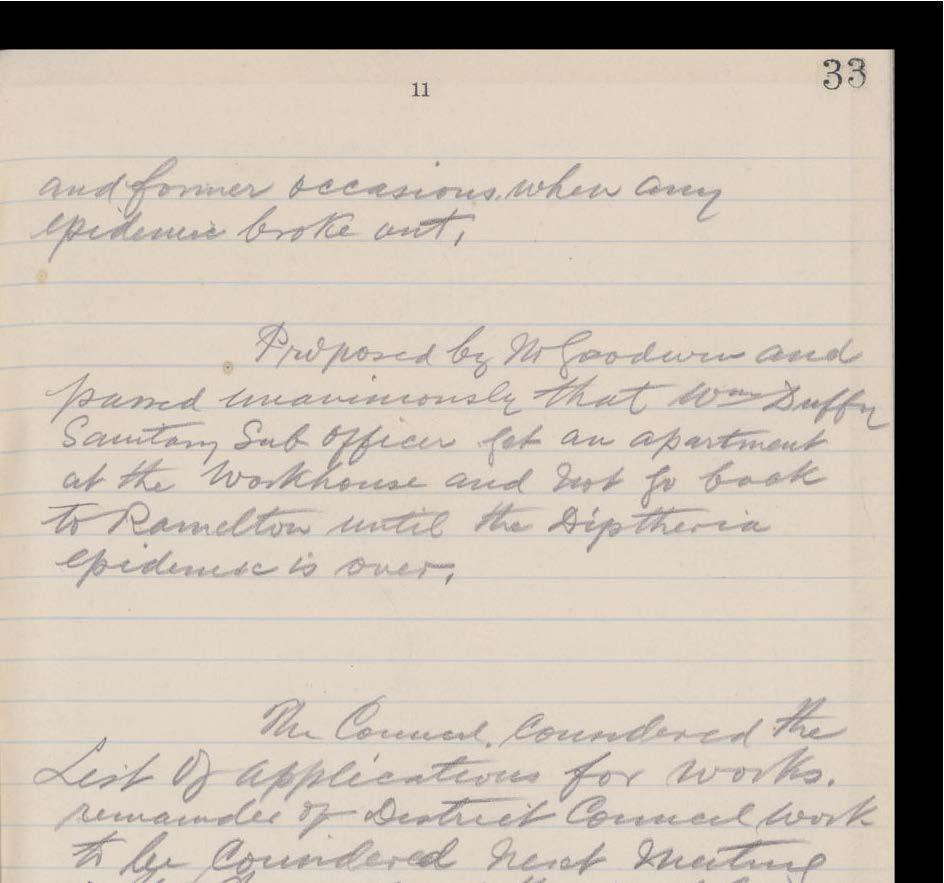 33
11
and former occasions when any
epidemic broke out.
Proposed by Mr Goodwin and
passed unanimously that Wm Duffy
Sanitary Sub Officer get an apartment
at the Workhouse and not go back
to Ramelton until the Diptheria
epidemic is over.
The Council considered the
List of applications for works.
remainder of District Council work
to be Considered next Meeting